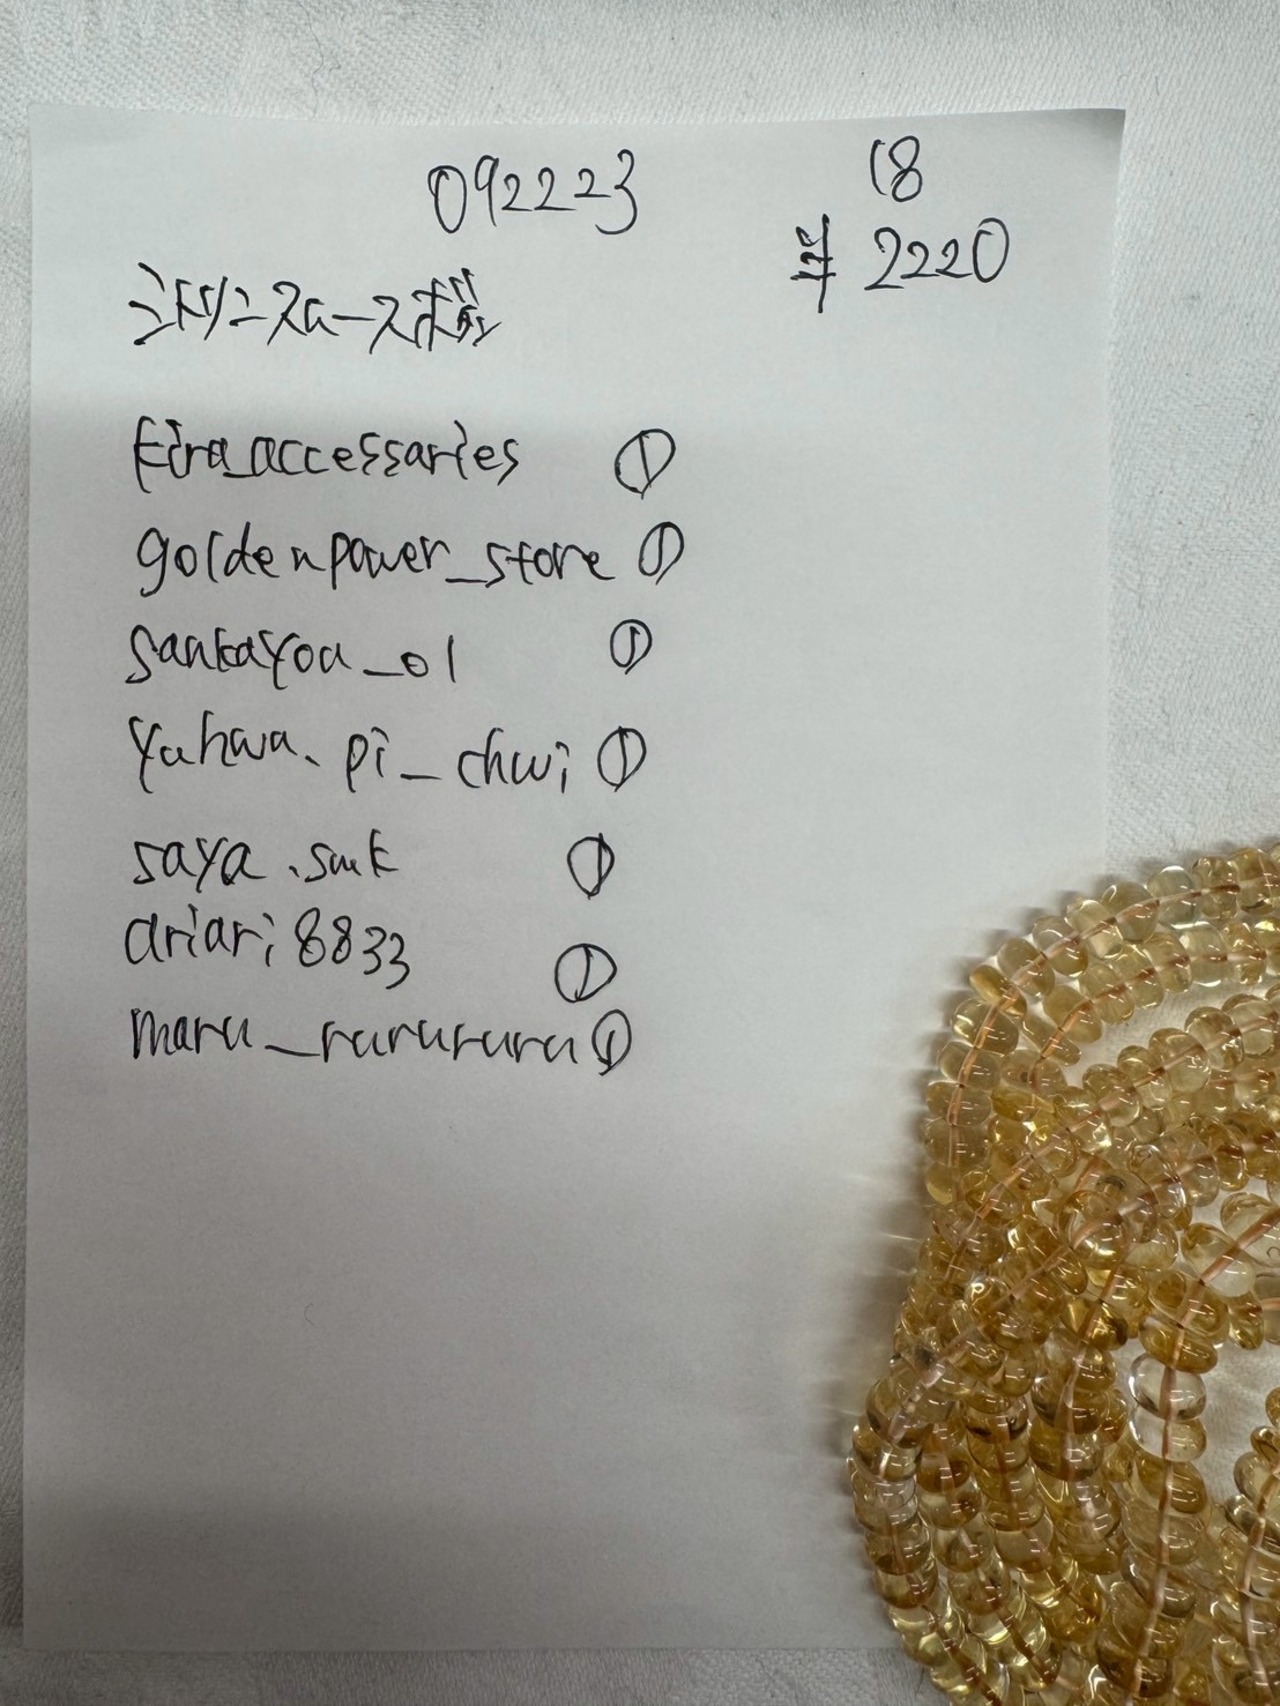 092223
18
半 2220
シトリンスムース
kira_accessaries ①
goldenpower_store ①
sankayou_01 ①
yuhwa.pi_chwi ①
saya.smk ①
ariari8833 ①
maru_rurururu ①